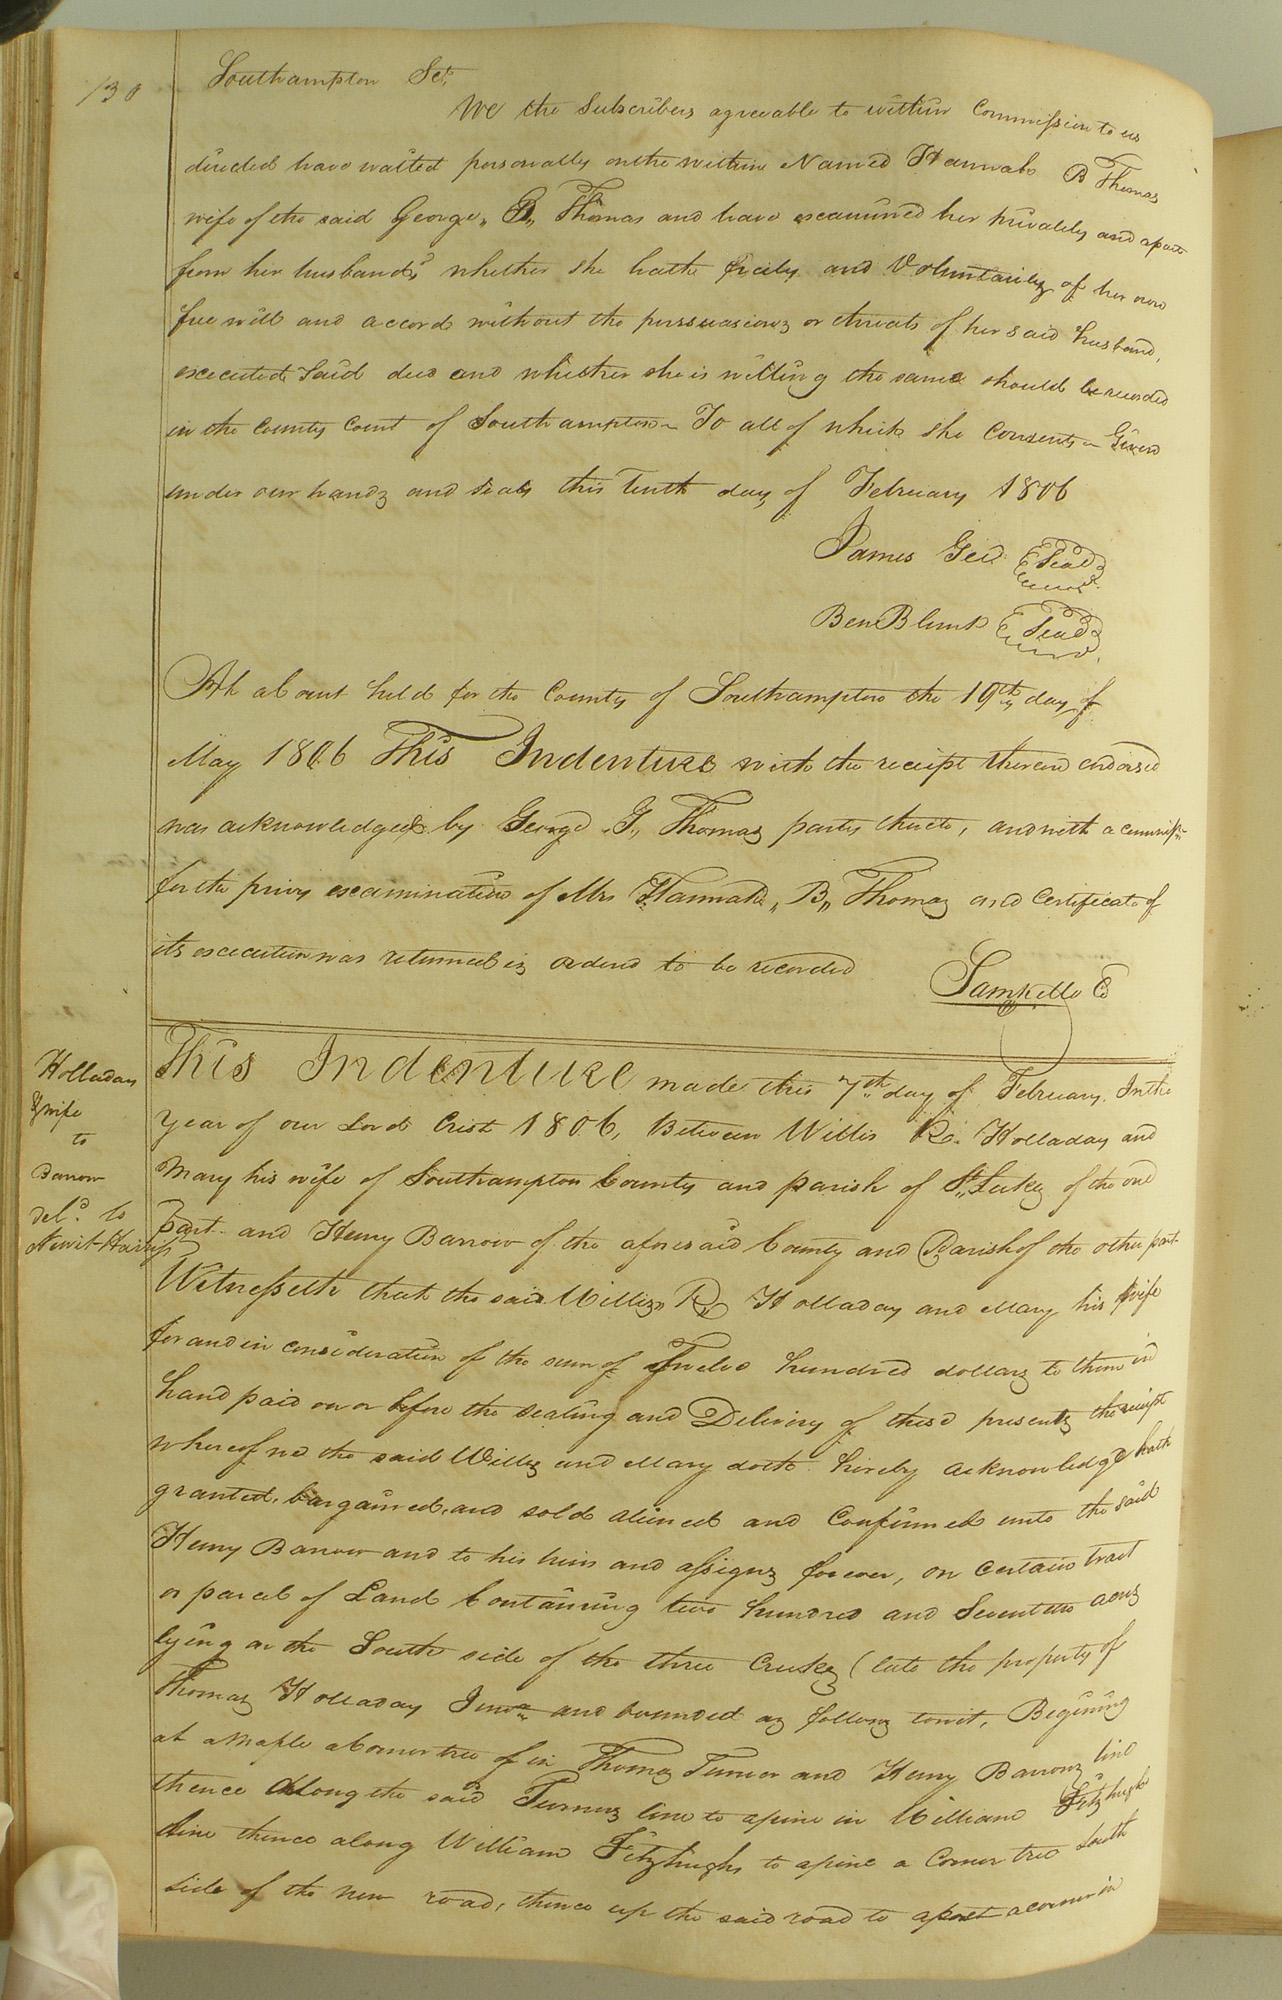 130
Southampton Sct.
We the Subscribers agreeable to within Commission to us
directed have waited personally on the within Named Hannah B Thomas
wife of the said George,, B,, Thomas and have examined her privately and apart
from her husband, whether she hath freely and Voluntarily of her own
free will and accord without the perssuasions or threats of her said husband,
executed Said deed and whether she is willing the same should be recorded
in the County Court of Southampton To all of which she Consents Given
under our hands and seals this Tenth day of February 1806
James Gee Seal
Ben Blunt Seal
At a Court held for the County of Southampton the 19th day of
May 1806 This Indenture with the receipt thereon endorsed
was acknowledged by George J,, Thomas party thereto, and with a commissn
for the privy examination of Mrs Hannah,, B,, Thomas and Certificate of
its execution was returned is orderd to be recorded
Saml Kello C
Holladay
& wife
to
Barrow
del.d to
Newit Harris
This Indenture made this 7th day of February In the
Year of our Lord Crist 1806, Between Willis R. Holladay and
Mary his wife of Southampton County and parish of St Lukes of the one
part and Henry Barrow of the aforesaid County and Parish of the other part
Witnesseth that the said Willis R Holladay and Mary his wife
for and in consideration of the sum of Twelve hundred dollars to them in
hand paid on or before the sealing and Delivery of these presents the receipt
whereof we the said Willis and Mary doth hereby acknowledge hath
granted, bargained, and sold aliened and Confirmed unto the said
Henry Barrow and to his heirs and assigns forever, on certain tract
or parcel of Land Containing two hundred and Seventeen acres
lying on the South side of the three Creeks (late the property of
Thomas Holladay Junr and bounded as follows towit, Begining
at a maple a corner tree of in Thomas Turner and Henry Barrows line
thence along the said Turners line to a pine in William Fitzhughs
line thence along William Fitzhughs to a pine a Corner tree South
side of the new road, thence up the said road to a post a corner in